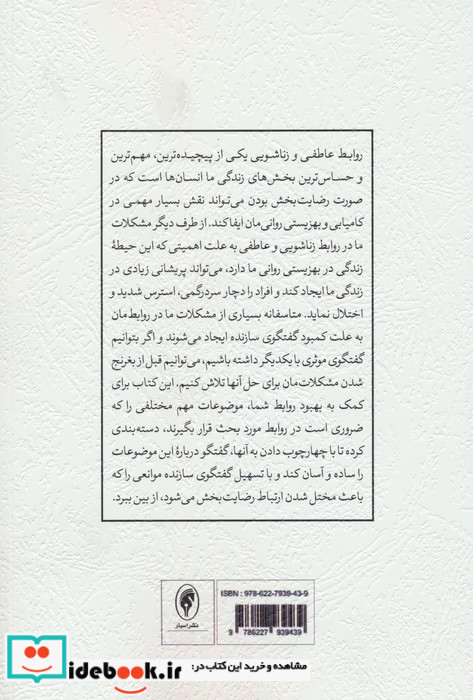 روابط عاطفی و زناشویی یکی از پیچیده‌ترین، مهم‌ترین
و حساس‌ترین بخش‌های زندگی ما انسان‌ها است که در
صورت رضایت‌بخش بودن می‌تواند نقش بسیار مهمی در
کامیابی و بهزیستی روانی‌مان ایفا کند. از طرف دیگر مشکلات
ما در روابط زناشویی و عاطفی به علت اهمیتی که این حیطهٔ
زندگی در بهزیستی روانی ما دارد، می‌تواند پریشانی زیادی در
زندگی ما ایجاد کند و افراد را دچار سردرگمی، استرس شدید و
اختلال نماید. متاسفانه بسیاری از مشکلات ما در روابط‌مان
به علت کمبود گفتگوی سازنده ایجاد می‌شوند و اگر بتوانیم
گفتگوی موثری با یکدیگر داشته باشیم، می‌توانیم قبل از بغرنج
شدن مشکلات‌مان برای حل آنها تلاش کنیم. این کتاب برای
کمک به بهبود روابط شما، موضوعات مهم مختلفی را که
ضروری است در روابط مورد بحث قرار بگیرند، دسته‌بندی
کرده تا با چهارچوب دادن به آنها، گفتگو دربارهٔ این موضوعات
را ساده و آسان کند و با تسهیل گفتگوی سازنده موانعی را که
باعث مختل شدن ارتباط رضایت‌بخش می‌شود، از بین ببرد.
نشر اسبار
ISBN: 978-622-7939-43-9
9 786227 939439
idebook.ir
مشاهده و خرید این کتاب در: